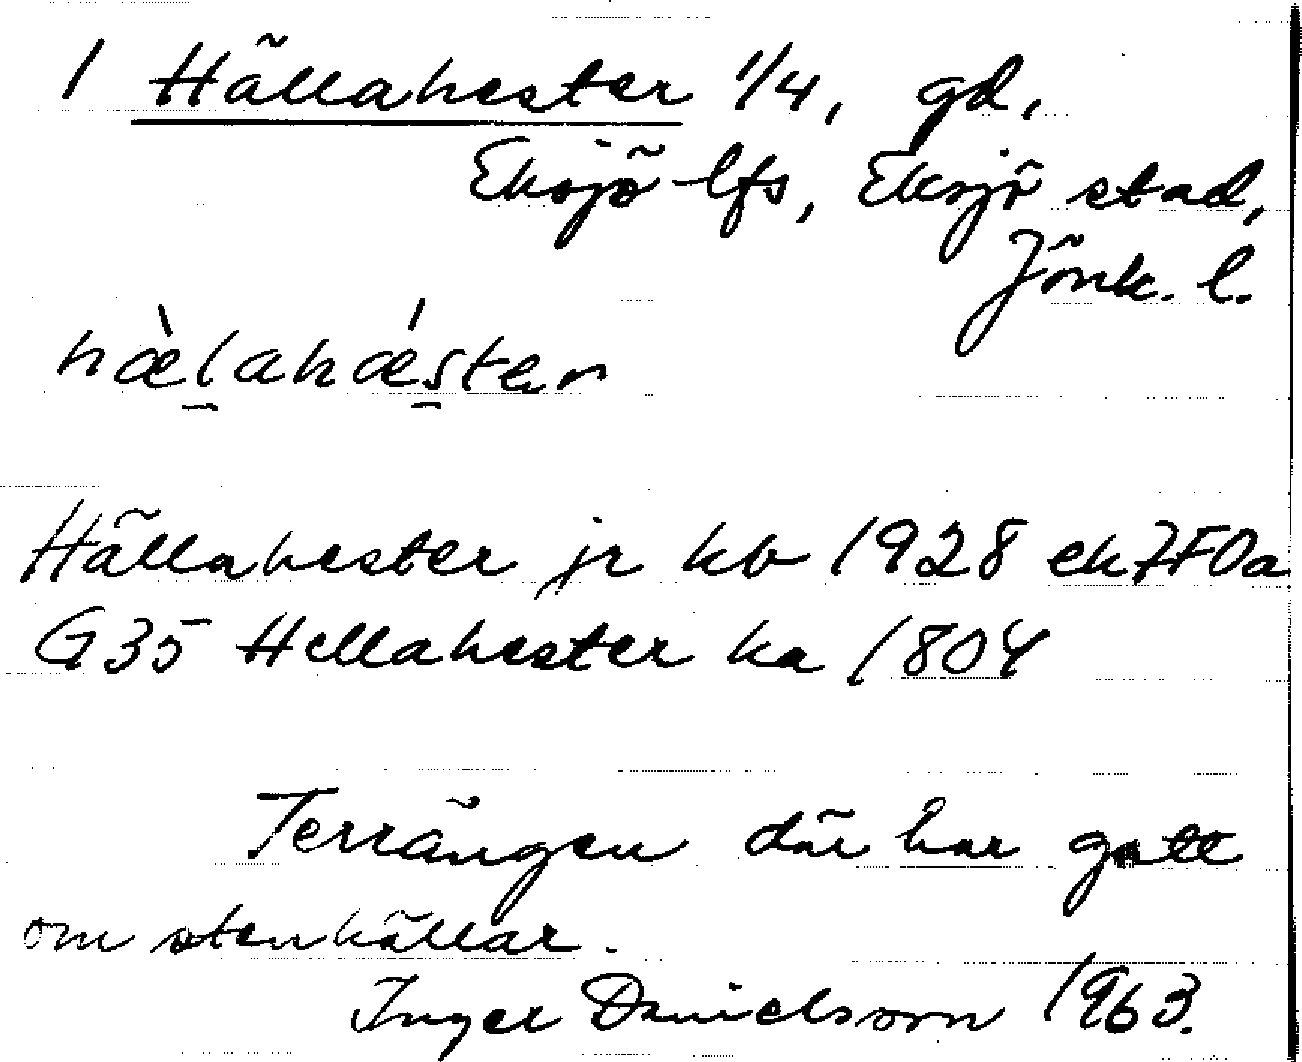 1 Hällahester 1/4, gd,
Eksjö lfs, Eksjö stad,
Jönk. l.
hæ̀l̠ahǽs̠ter
Hällahester jr kb 1928 ek 7F0a
G35 Hellahester ka 1804
Terrängen där har gott
om stenhällar.
Inger Danielsson 1963.